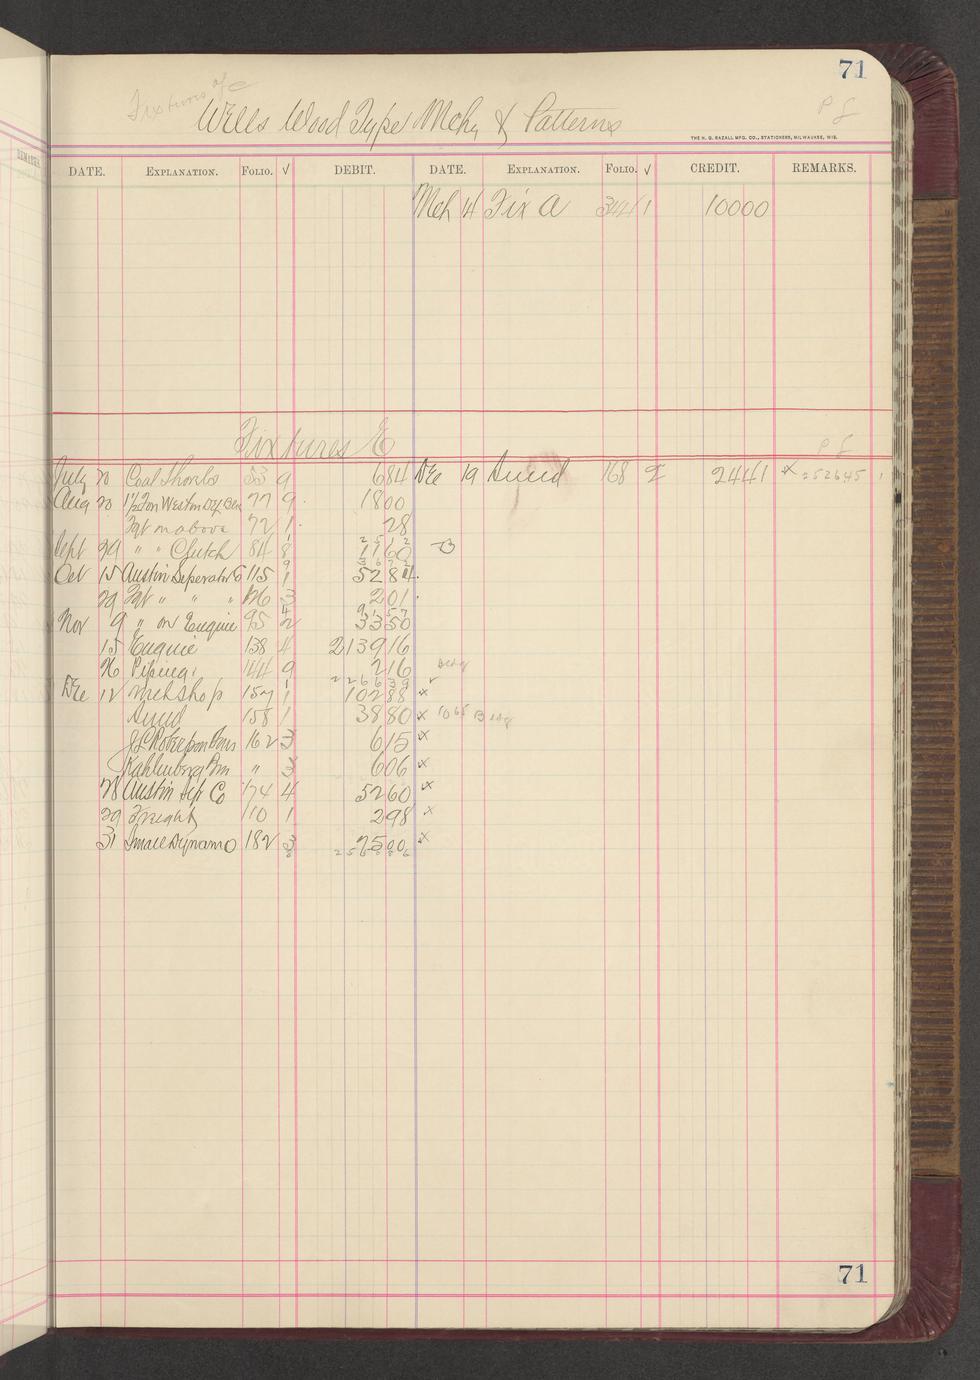 71
Fixtures of C
P L
Wells Wood Type Mchy & Patterns
THE H. G. RAZALL MFG. CO., STATIONERS, MILWAUKEE, WIS.
REMARKS.
DATE. EXPLANATION. FOLIO. √ DEBIT. DATE. EXPLANATION. FOLIO. √ CREDIT. REMARKS.
Mch 14 Fix A 344 1 10000
Fixtures E
P L
July 20 Coal Shovels 53 9 684 Dec 19 Sund 168 2 2441 x 252645
Aug 20 1½ Ton Weston Dif 77 9 1800
Frt on above 72 1 28
Sept 29 " " Clutch 84 8 1160 B
Oct 15 Austin Seperator 115 1 5284
29 Frt " " " 126 3 201
Nov 9 " on Engine 95 2 3350
15 Engine 138 4 213916
26 Piping 144 9 216
226639
Dec 12 Mch Shop 157 1 10288 x
Sund 158 1 3880 x
J L Robertson Sons 162 3 615 x
Kahlenberg Bros " 3 606 x
28 Austin Sep Co 174 4 5260 x
29 Freight 110 1 298 x
31 Small Dynamo 182 3 2500 x
71